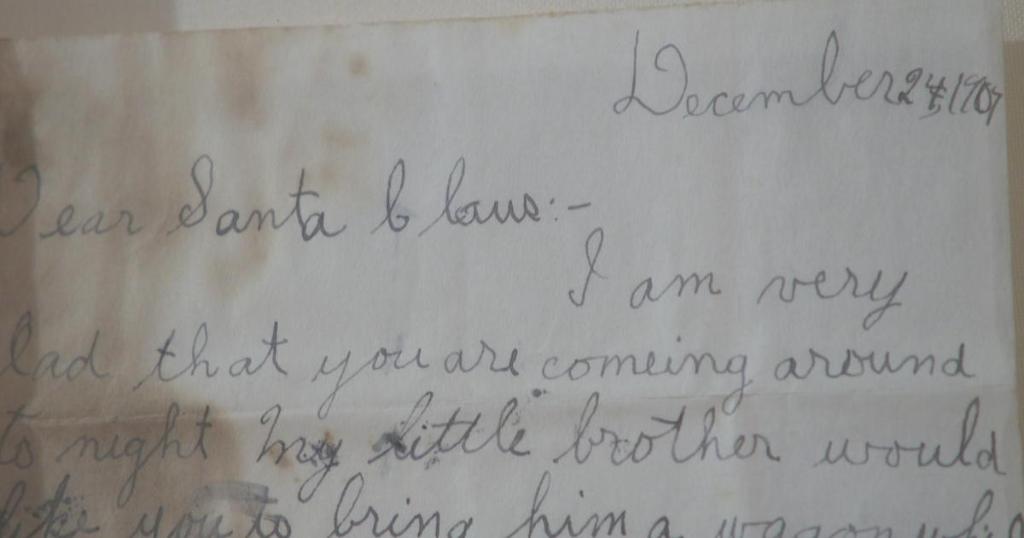 December 24, 1907
Dear Santa Claus:-
I am very
lad that you are comeing around
to night my little brother would
like you to bring him a wagon whi